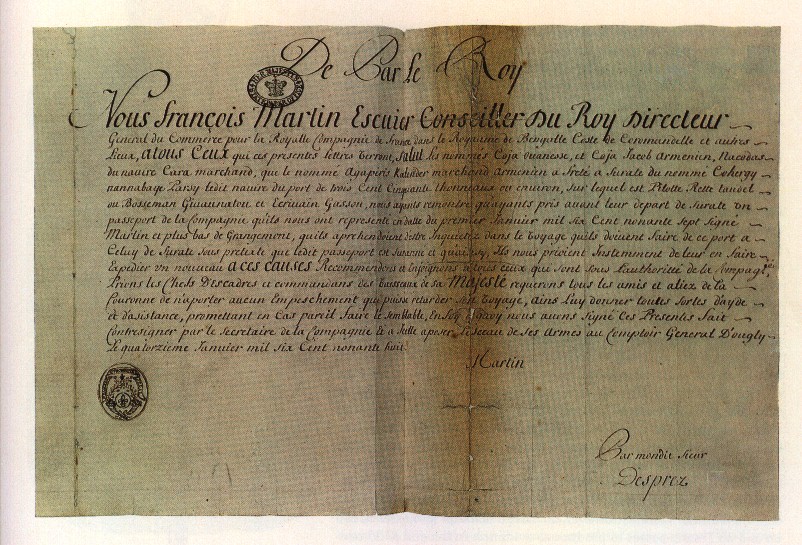 De Par Le Roy
Nous François Martin Escuier Conseiller Du Roy Directeur
General du Commerce pour la Royalle Compagnie de France dans le Royaume de Bengalle Coste de Coromandelle et autres
Lieux, atous Ceux qui ces presentes lettres Verront, Salut les nommés Coja ouanesse, et Coja Jacob Armenien, Nacodas
du navire Cara marchand, que le nommé Agapiris Kalender marchand Armenien a freté a Surate du nommé Cohergy
nannabaye Parsy ledit navire du port de trois Cent Cinquante thonneaux ou environ, sur lequel est Pilotte Rette tandel
ou Bosseman et Ecrivain Gasson, nous ayants remontré quayants pris avant leur depart de Surate un
passeport de la Compagnie quils nous ont representé en datte du premier Janvier mil six Cent nonante sept signé
Martin et plus bas de Grangement, quils aprehendoient destre Inquietés dans le Voyage quils doivent faire de ce port a
Celuy de Surate sous pretexte que ledit passeport est Suranné et Ils nous prioient Instemment de leur en faire
Expedier un nouveau a ces causes Recommendons et Enjoignons a tous ceux qui sont sous l'authorité de la Compagnie
Prions les Chefs Descadres et commandans des Vaisseaux de sa Majesté requerons tous les amis et aliez de la
Couronne de n'aporter aucun Empeschement qui puisse retarder son Voyage, ains Luy donner toutes sortes d'ayde
et d'asistance, promettant en Cas pareil faire le semblable, En foy de quoy nous avons signé Ces Presentes fait
Contresigner par le Secretaire de la Compagnie et a Icelle aposer le sceau de ses Armes au Comptoir General D'ougly
Le quatorzieme Janvier mil six Cent nonante huit
Martin
Par mondit sieur
Desprez